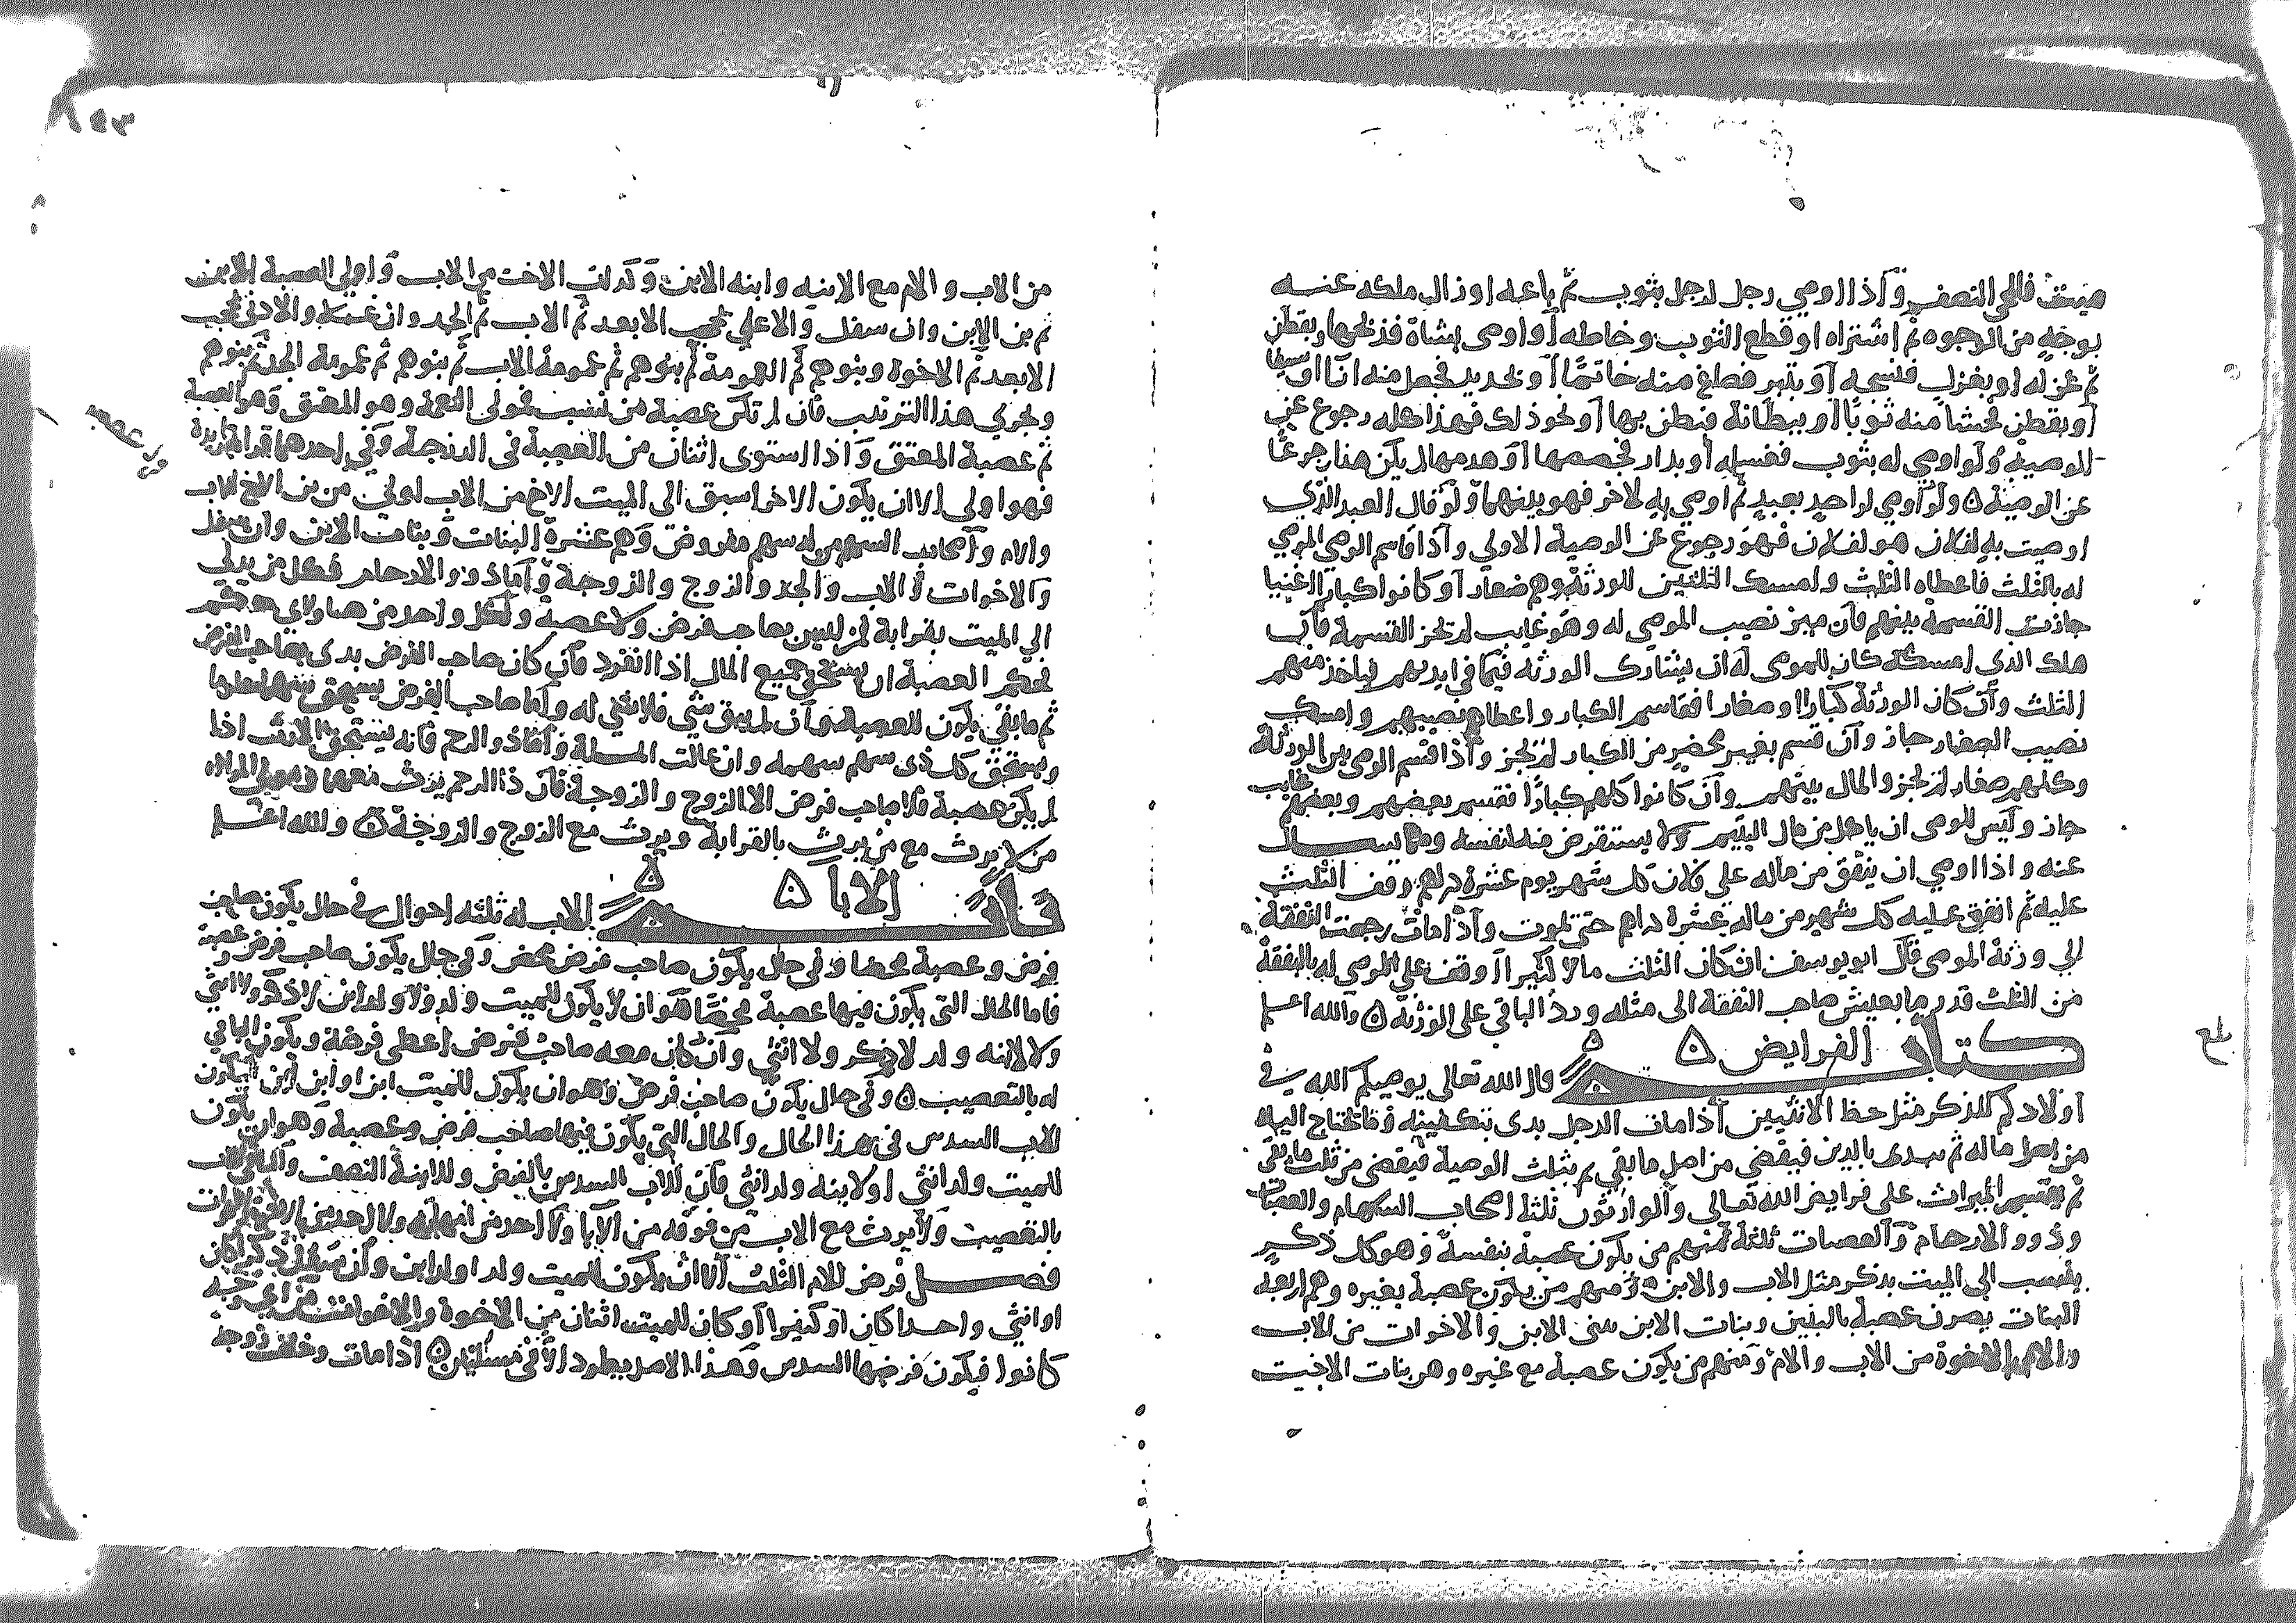 ميت فللحي النصف واذا اوصى رجل لرجل بثوب ثم باعه او زال ملكه عنه
بوجه من الوجوه ثم اشتراه او قطع الثوب وخاطه او اوصى بشاة فذبحها او بقطن
ثم غزله او بغزل فنسجه او بتبر فصاغ منه خاتما او بحديد فجعل منه اناا او سيفا
او بقطن فحشا منه ثوبا او ببطانة فبطن بها او نحو ذلك فهذا كله رجوع عن
الوصية ولو اوصى له بثوب فغسله او بدار فجصصها او هدمها لم يكن هذا رجوعا
عن الوصية ۵ ولو اوصى لواحد بعبد ثم اوصى به لاخر فهو بينهما ولو قال العبد الذي
اوصيت به لفلان هو لفلان فهو رجوع عن الوصية الاولي واذا قاسم الوصي الموصي
له بالثلث فاعطاه الثلث وامسك الثلثين للورثة وهم صغار او كانوا كبارا اغنيا
جازت القسمة بينهم فان ميز نصيب الموصي له وهو غايب لم تجز القسمة فان
هلك الذي امسكه كان للموصى له ان يشارك الورثه فيما في ايديهم فياخذ منهم
الثلث وان كان الورثة كبارا وصغارا فقاسم الكبار واعطاهم نصيبهم وامسك
نصيب الصغار جاز وان قسم بغير محضر من الكبار لم تجز واذا قسم الوصى بين الورثة
وكلهم صغار لم تجز والمال بينهم وان كانوا كلهم كبارا فقسم بعضهم وبعضهم غايب
جاز وليس للوصى ان ياكل من مال اليتيم ولا يستقرض منه لنفسه
عنه واذا اوصي ان ينفق من ماله على فلان كل شهر يوم عشرة دراهم وقف الثلث
عليه ثم انفق عليه كل شهر من ماله عشرة دراهم حتى تموت واذا مات رجعت النفقة
الي ورثة الموصى قال ابو يوسف ان كان الثلث مالا كثيرا اوقف على الموصى له بالنفقة
من الثلث قدر ما يعيش صاحب النفقة الى مثله ورد الباقي على الورثة ۵ والله اعلم
كتاب الفرايض ۵ قال الله تعالى يوصيكم الله في
اولادكم للذكر مثل حظ الانثيين اذا مات الرجل بدى بتكفينه وما تحتاج اليه
من اصل ماله ثم يبدى بالدين فيقضي من اصل ما بقي ثم بثلث الوصية فيقضى من ثلث ما بقي
ثم يقسم الميراث على فرايض الله تعالى والوارثون ثلثه اصحاب السهام والعصبات
وذوو الارحام والعصبات ثلثة منهم من يكون عصبة بنفسه وهو كل ذكر
ينسب الى الميت بذكر مثل الاب والابن ومنهم من يكون عصبة بغيره وهم اربعة
البنات يصرن عصبة بالبنين وبنات الابن ببني الابن والاخوات من الاب
والام بالاخوة من الاب والام ومنهم من يكون عصبة مع غيره وهن بنات الاخت
من الاب والام مع الابنه وابنه الابن وكذلك الاخت من الاب واولى العصبة الابن
ثم بن الابن وان سفل والاعلي يحجب الابعد ثم الاب ثم الجد وان علا والادنى يحجب
الابعد ثم الاخوة وبنوهم ثم العمومة ثم بنوهم ثم عمومة الاب ثم بنوهم ثم عمومة الجد ثم بنوهم
وتجري هذا الترتيب فان لم تكن عصبة من نسب فمولى النعمة وهو المعتق وهو العصبة
ثم عصبة المعتق واذا استوى اثنان من العصبة في الدرجة وفي احدهما قرابة زايدة
فهو اولى الا ان يكون الاخر اسبق الى الميت الاخ من الاب اولى من بن الاخ للاب
والام واصحاب السهم من له سهم مفروض وهم عشرة البنات وبنات الابن وان سفل
والاخوات والاب والجد والزوج والزوجة واما ذوو الارحام فكل من يدلي
الى الميت بقرابة لمن ليس بصاحب فرض ولا عصبه ولكل واحد من هاولاي حكم
فحكم العصبة ان يستحق جميع المال اذا انفرد فان كان صاحب الفرض بدى بصاحب الفرض
ثم ما بقي يكون للعصبة وان لم يبق شي فلا شي له واما صاحب الفرض
ويستحق كل ذي سهم سهمه وان عالت المسلة واما ذو الرحم فانه يستحق الارث اذا
لم يكن عصبة ولا صاحب فرض الا الزوج والزوجة فان ذا الرحم يرث معهما
من لا يرث مع من يرث بالقرابة ويرث مع الزوج والزوجة ۵ والله اعلم
باب الابا ۵ للاب له ثلثه احوال في حال يكون صاحب
فرض وعصبة محضا وفي حال يكون صاحب فرض محض وفي حال يكون صاحب فرض وعصبة
فاما الحال التي يكون فيها عصبة محضا هو ان لا يكون للميت ولد ولا ولد ابن لا ذكر ولا انثى
ولا لابنه ولد لا ذكر ولا انثى وان كان معه صاحب فرض اعطي فرضة ويكون الباقي
له بالتعصيب ۵ وفي حال يكون صاحب فرض وهو ان يكون للميت ابن او ابن ابن فيكون
للاب السدس في هذا الحال والحال التي يكون فيها صاحب فرض وعصبة وهو ان يكون
للميت ولد انثى او لابنه ولد انثى فان للاب السدس بالفرض وللابنة النصف والباقي للاب
بالتعصيب ولا يرث مع الاب من فوقه من الابا ولا احد من امهاته ولا احد من الاخوة والاخوات
فصل فرض للام الثلث الا ان يكون للميت ولد او ولد ابن وان سفل ذكرا كان
او انثى واحدا كان او كثيرا او كان للميت اثنان من الاخوة والاخوات من اي وجه
كانوا فيكون فرضها السدس وهذا الاصل يطرد الا في مسئلتين ۵ اذا مات وخلف زوجة